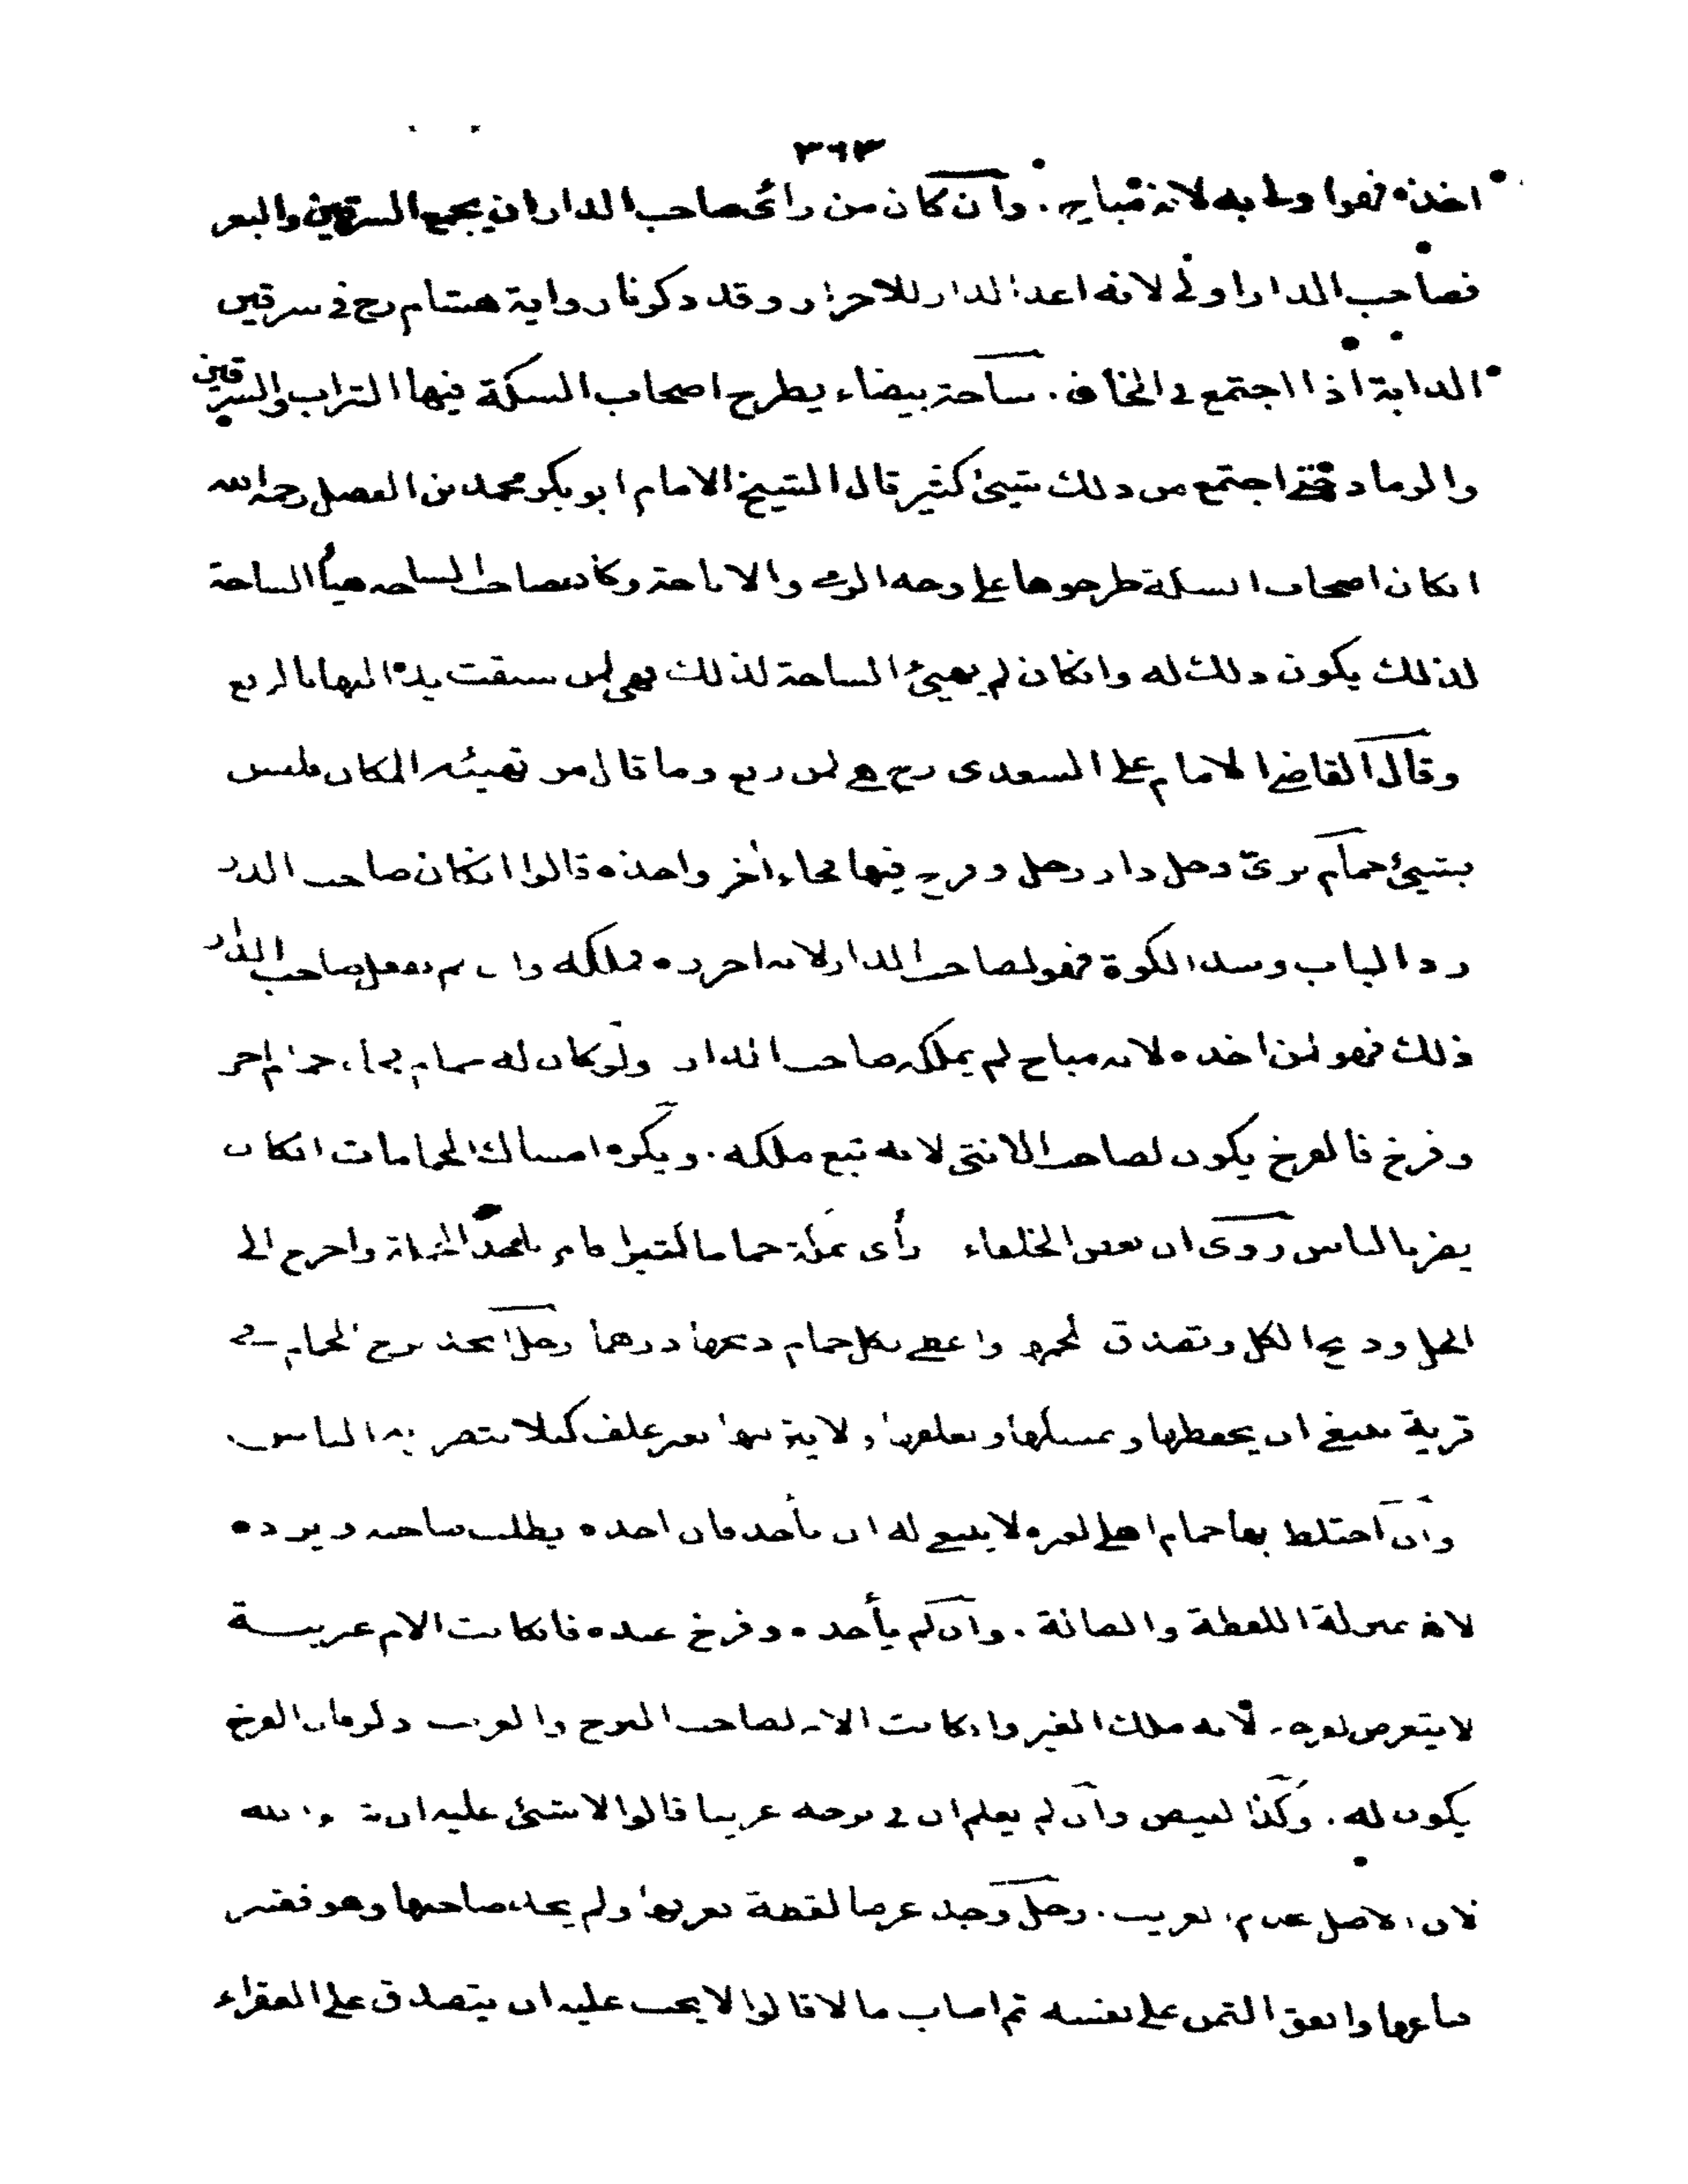 ٣٦٣
اخذه فهوا ولى به لانه مباح . وان كان من رأى صاحب الدار ان يجمع السرقين والبعر
فصاحب الدار اولى لانه اعد الدار للاحراز وقد ذكرنا رواية هشام رح فى سرقين
الدابة اذا اجتمع فى الخان . ساحة بيضاء يطرح اصحاب السكة فيها التراب والسرقين
والرماد حتى اجتمع من ذلك شيئ كثير قال الشيخ الامام ابو بكر محمد بن الفضل رحمه الله
انكان اصحاب السكة طرحوها على وجه الرمى والاباحة وكان صاحب الساحه هيأ الساحة
لذلك يكون ذلك له وانكان لم يهيئ الساحة لذلك فهى لمن سبقت يده اليها بالرفع
وقال القاضى الامام على السعدى رح هى لمن رفع وما قال من تهيئه المكان فليس
بشيئ حمام برى دخل دار رجل وفرخ فيها فجاء اخر واخذه قالوا انكان صاحب الدار
رد الباب وسد الكوة فهو لصاحب الدار لانه احرزه فملكه وان لم يفعل صاحب الدار
ذلك فهو لمن اخذه لانه مباح لم يملكه صاحب الدار ولو كان له حمام فجاء حمام اخر
وفرخ فالفرخ يكون لصاحب الانثى لانه تبع ملكه . ويكره امساك الحمامات انكان
يضر بالناس روى ان بعض الخلفاء رأى بمكة حماما كثيرا فامر واخرج الى
الحل وذبح الكل وتصدق بلحمه واعطى بكل حمام ذبحها درهما رجل اتخذ برج الحمام فى
قرية ينبغى ان يحفظها ويمسكها ويعلفها ولا يتركها بغير علف كيلا يتضرر به الناس
وان اختلط بها حمام اهلى لغيره لا ينبغى له ان يأخذ فان اخذه يطلب صاحبه ويرده
لانه بمنزلة اللقطة والضالة . وان لم يأخذه وفرخ عنده فانكانت الام غريبة
لا يتعرض لفرخه لانه ملك الغير وانكانت الام لصاحب البرج والغريب ذكر فان الفرخ
يكون له . وكذا البيض وان لم يعلم ان فى برجه غريبا قالوا لا شئ عليه ان شاء الله
لان الاصل عدم الغريب . رجل وجد عرضا لقطة فعرفها ولم يجد صاحبها وهو فقير
فباعها وانفق الثمن على نفسه ثم اصاب مالا قالوا لا يجب عليه ان يتصدق على الفقراء